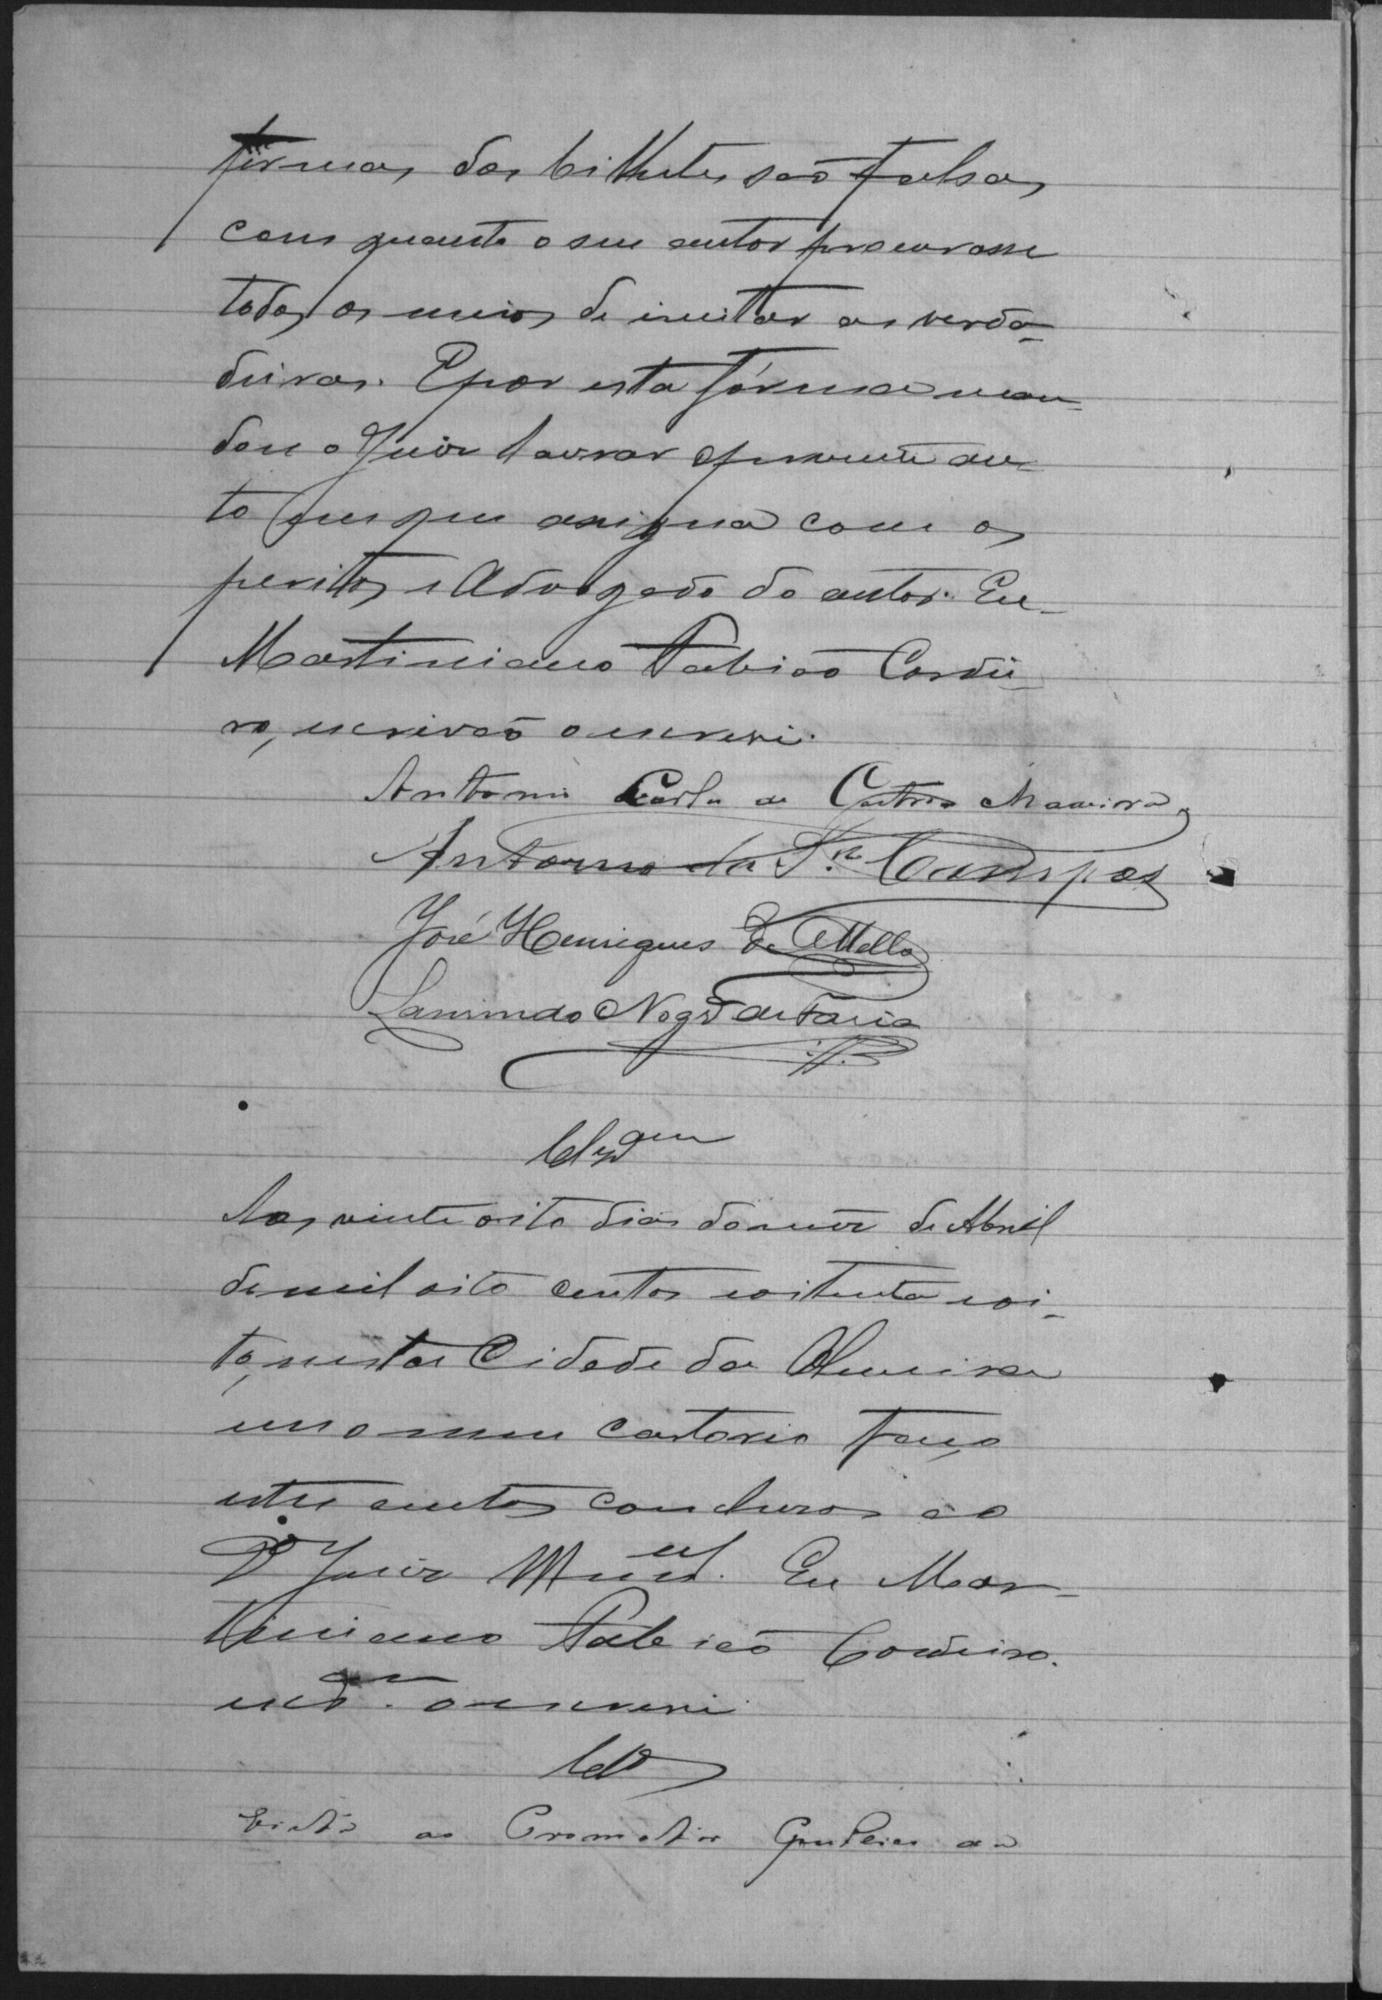 firmas dos bilhetes são falsas,
com quanto o seu autor procurasse
todos os meios de imitar as verda-
deiras. E por esta fórma man-
dou o Juiz lavrar o presente au-
to em que assigna com os
peritos e Advogado do autor. Eu
Martiniano Fabião Cordei-
ro, escrivão o escrevi.
Antonio Carlos de Castro Madeira
Antonio da S.ª Campos
José Henriques de Mello
Laurindo Nogr.ª de Faria
Clzam
Aos vinte oito dias do mez de Abril
de mil oito centos e oitenta e oi-
to, nesta Cidade da Oliveira
em o meu cartorio faço
estes autos conclusos ao
Dr Juiz Mun.al. Eu Mar-
tiniano Fabião Cordeiro.
escam. o escrevi
Clos
Vista ao Promotor Publico da